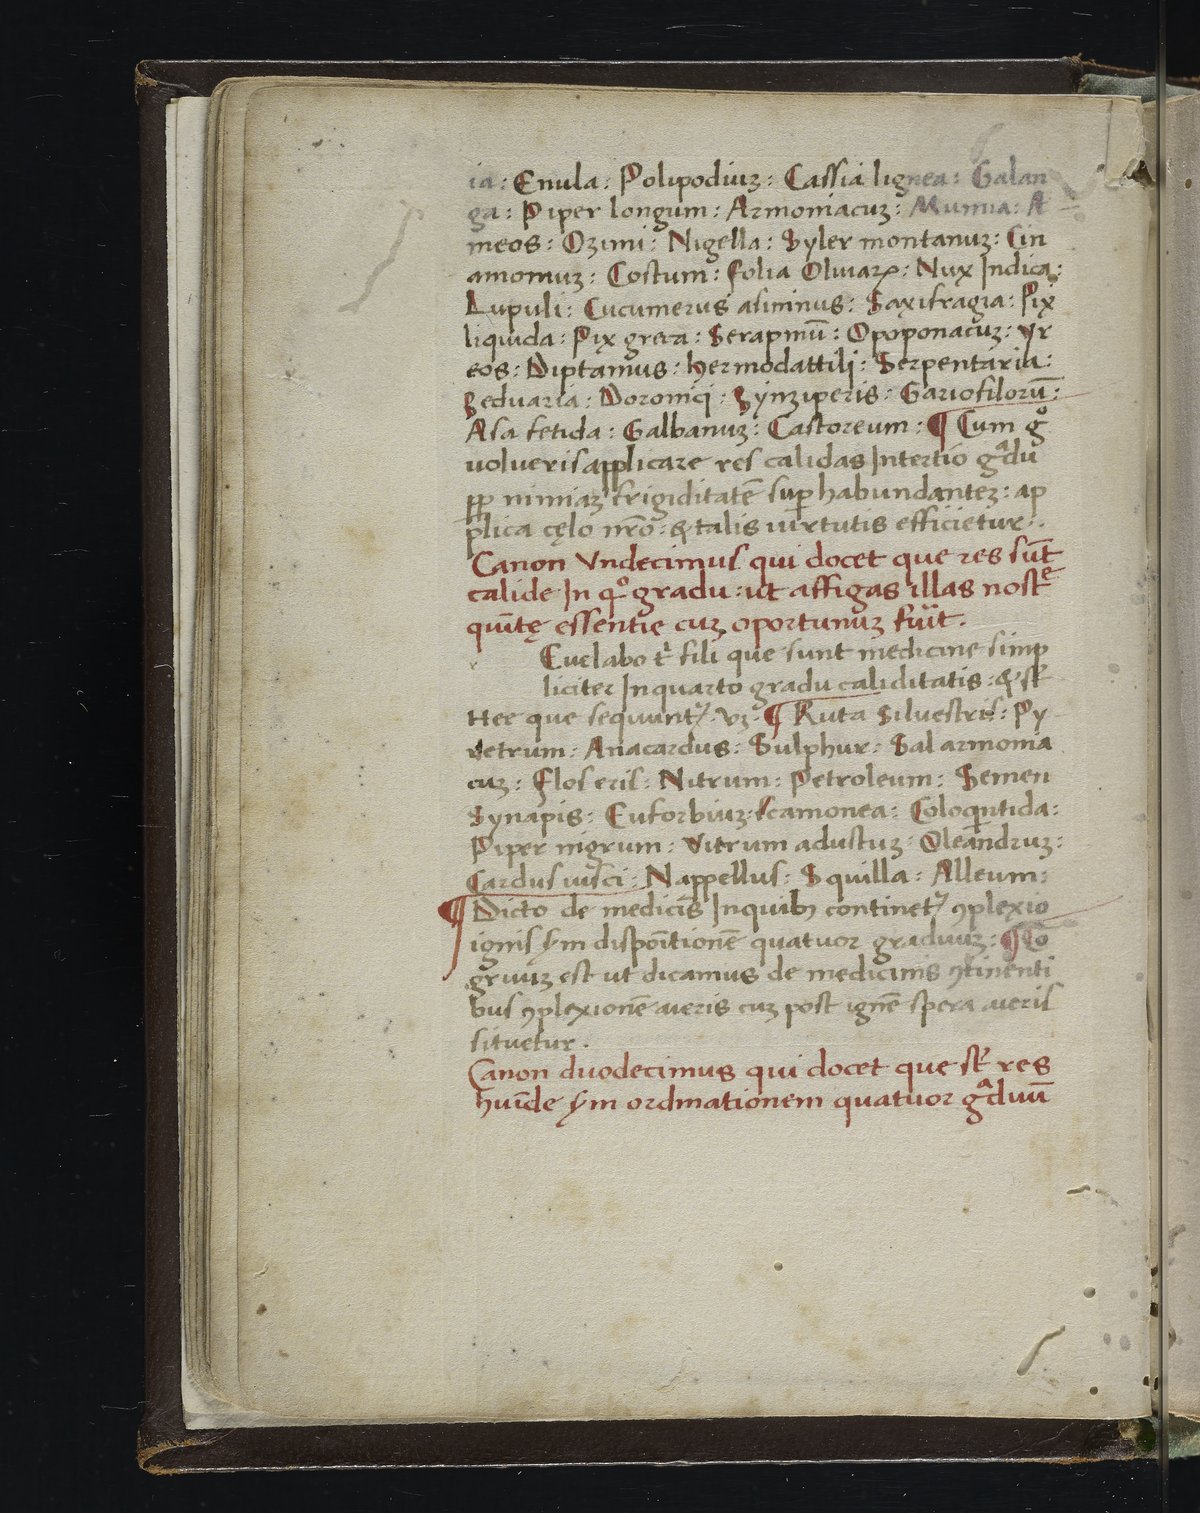 ia: Enula: Polipodiuꝫ: Cassia lignea: Galan
ga: Piper longum: Armoniacuꝫ: Mumia: A
meos: Ozimi: Nigella: Syler montanuꝫ: Cin
amomuꝫ: Costum: folia Oliuaꝝ: Nux Indica:
Lupuli: Cucumerus asininus: Saxifragia: Pix
liquida: Pix greca: Serapinū: Opoponacuꝫ: yr
eos: Diptamus: hermodattili: Serpentaria:
Zeduaria: Doronici: Zynziperis: Gariofilorū:
Asa fetida: Galbanuꝫ: Castoreum: ¶ Cum gͦ
uolueris applicare res calidas Intertio gᵃdu
ꝑp nimiaꝫ frigiditatē suꝑhabundanteꝫ: ap
plica cęlo nr̄o: & talis uirtutis efficietur:.
Canon Vndecimus qui docet que res sūt
calide In qͦ gradu: ut affigas illas nostᵉ
quītę essentie cuꝫ oportunuꝫ fuit.
Cuelabo tⁱ fili que sunt medicine simp
liciter Inquarto gradu caliditatis: & st̄
Hee que sequunt᷑. vꝫ. ¶ Ruta Siluestris: Py
retrum: Anacardus: Sulphur: Sal armonia
cuꝫ: Flos eris: Nitrum: Petroleum: Semen
Synapis: Euforbiuꝫ: scamonea: Coloqntida:
Piper nigrum: Vitrum adustuꝫ: Oleandruꝫ:
Cardus uisci: Nappellus: Squilla: Alleum:
¶ Dicto de medicīs Inquibꝫ continet᷑ ꝯplexio
ignis s̄m dispoītionē quatuor graduuꝫ: ¶ Co
gruuꝫ est ut dicamus de medicinis ꝯtinenti
bus ꝯplexionē aeris cuꝫ post ignē spera aeris
situetur.
Canon duodecimus qui docet que st̄ res
huīde s̄m ordinationem quatuor gᵃduū